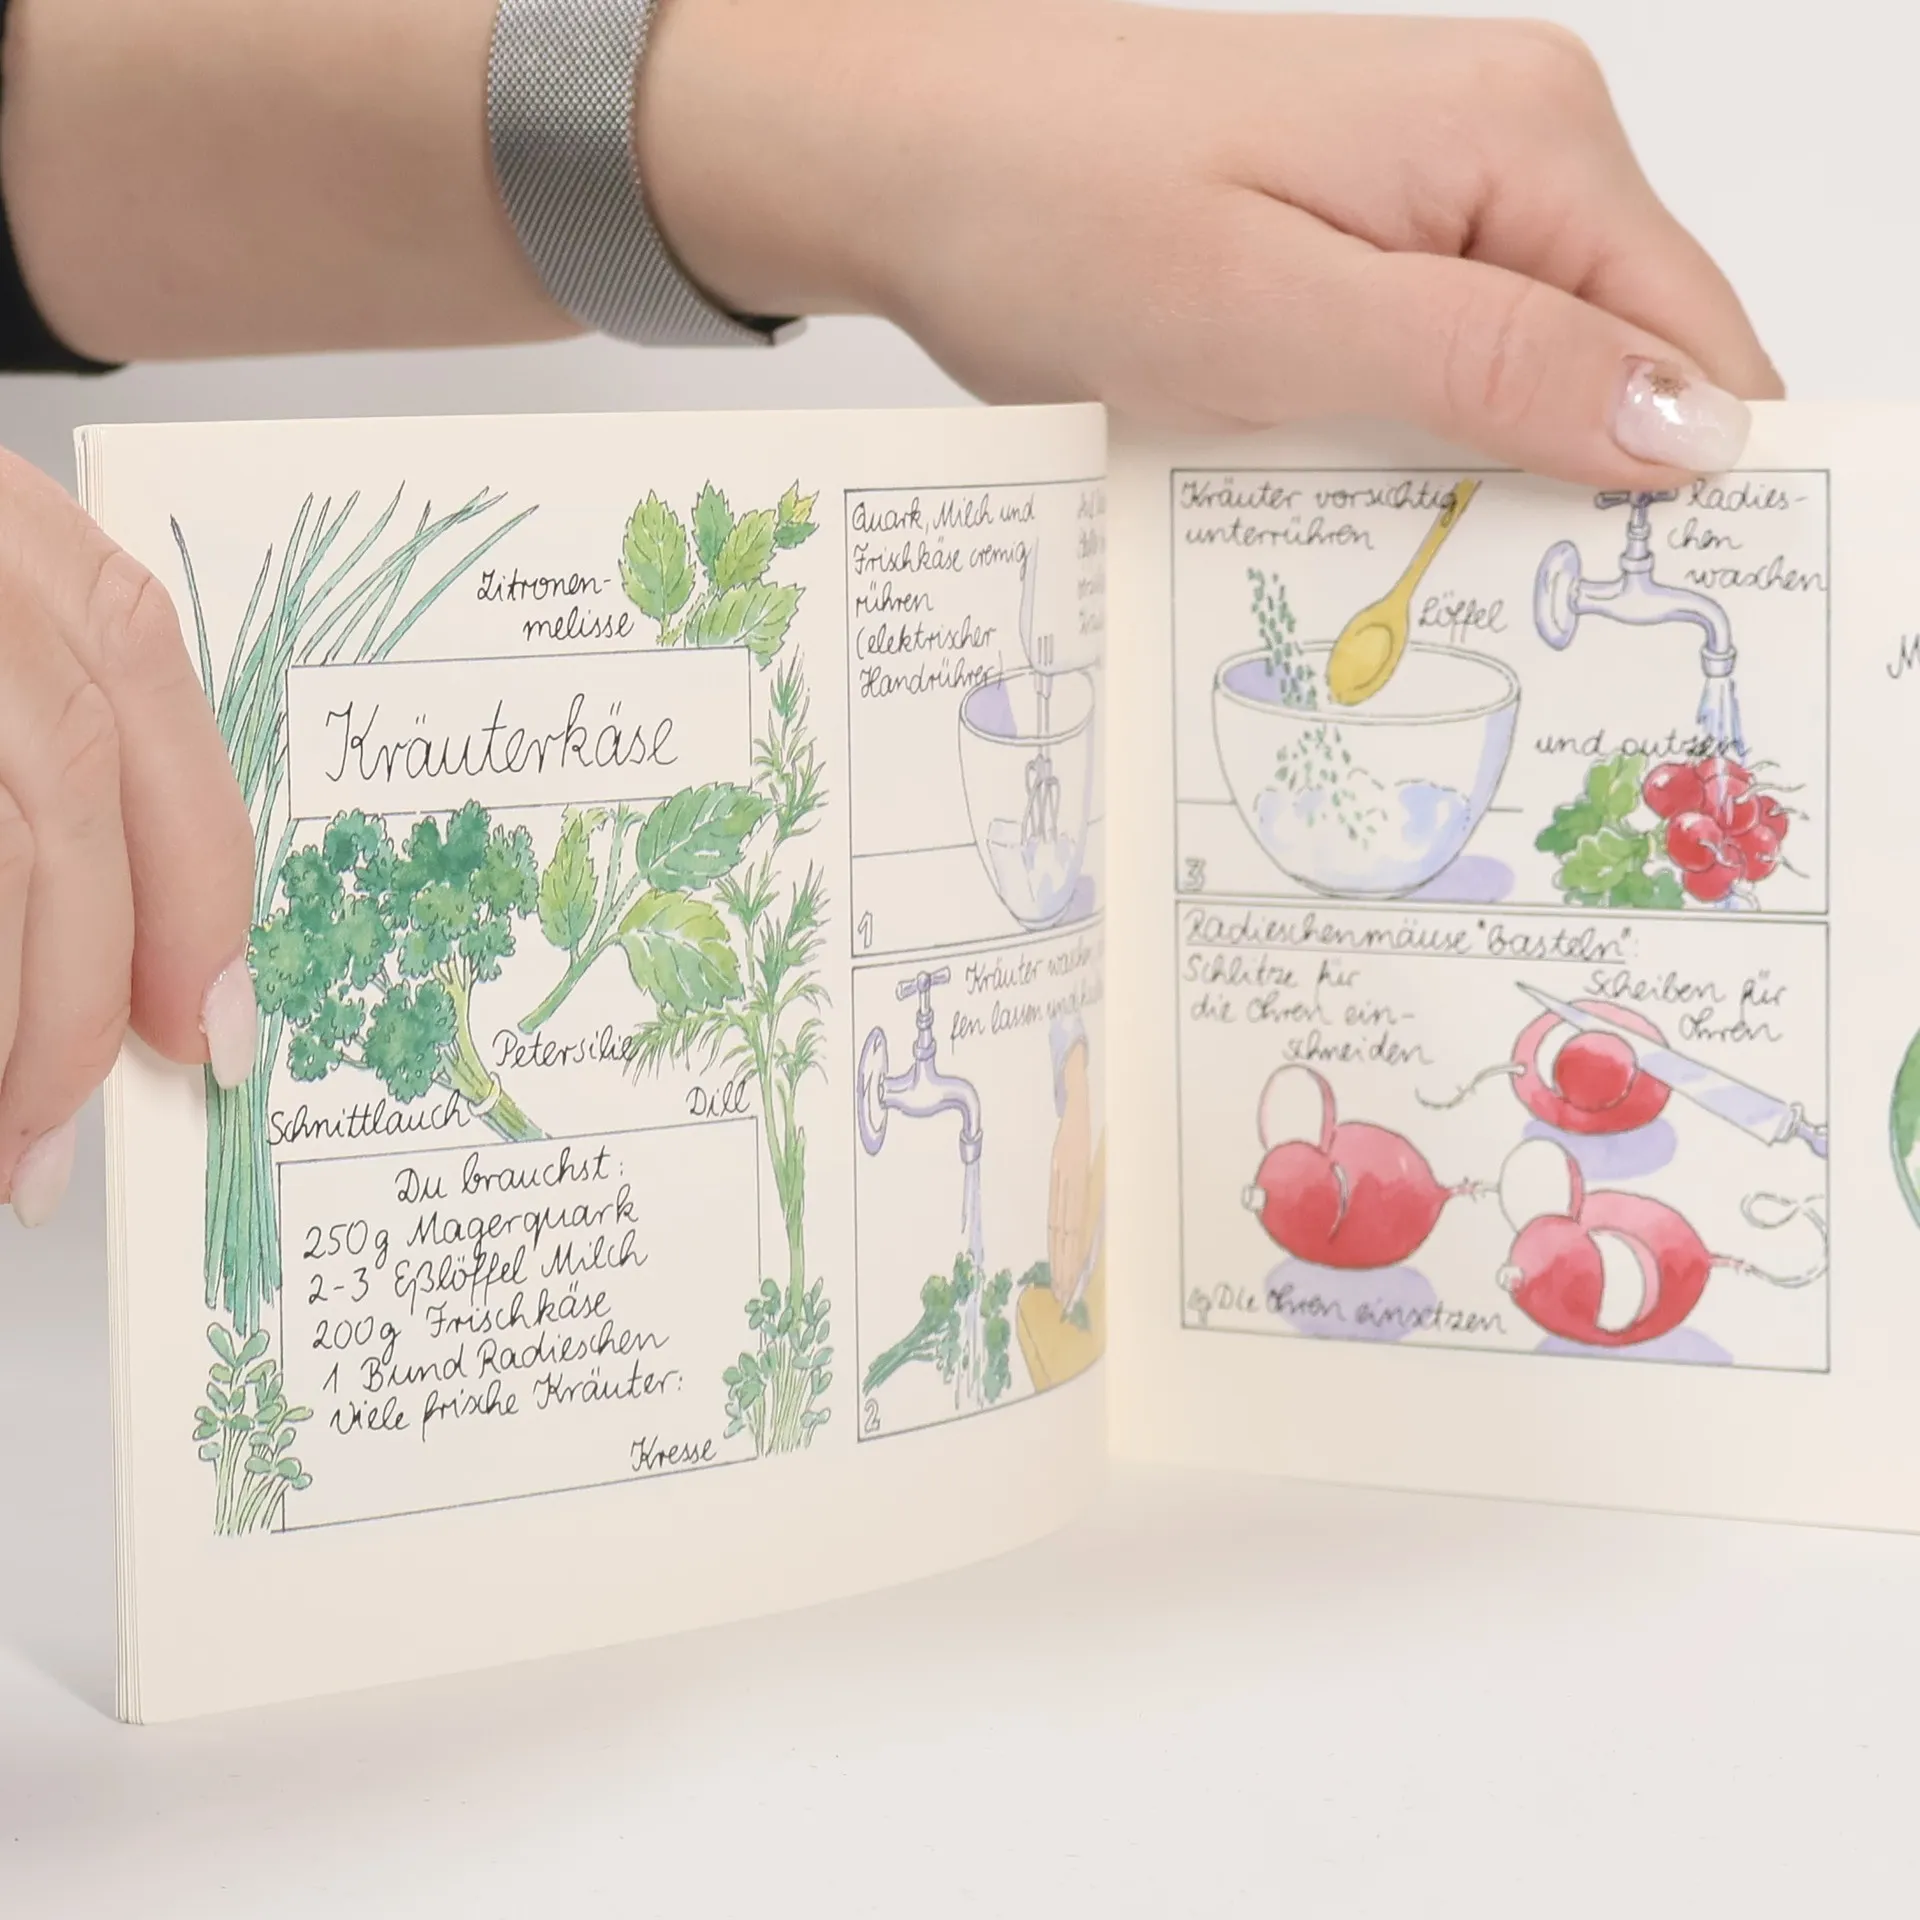 Zitronen-
melisse
Kräuterkäse
Petersilie
Dill
Schnittlauch
Du brauchst:
250g Magerquark
2-3 Eßlöffel Milch
200g Frischkäse
1 Bund Radieschen
Viele frische Kräuter:
Kresse
Quark, Milch und
Frischkäse cremig
rühren
(elektrischer
Handrührer)
1
Kräuter
fen lassen und
2
Kräuter vorsichtig
unterrühren
Löffel
3
Radies-
chen
waschen
und putzen
Radieschenmäuse "basteln":
Schlitze für
die Ohren ein-
schneiden
Scheiben für
Ohren
Die Ohren einsetzen